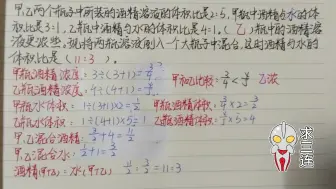 甲、乙两个瓶子中所装的酒精溶液的体积比是2:5，甲瓶中酒精与水的体
积比是3:1，乙瓶中酒精与水的体积比是4:1。(乙)瓶中的酒精溶
液更浓些。现将两瓶溶液倒入一个大瓶子中混合，这时酒精与水的
体积比是(11:3)。
甲瓶酒精浓度：3÷(3+1)=3/4
甲和乙比较：3/4<4/5 乙浓
乙瓶酒精浓度：4÷(4+1)=4/5
甲瓶水体积：1÷(3+1)×2=1/2
甲瓶酒精体积：3/4×2=3/2
乙瓶水体积：1÷(4+1)×5=1
乙瓶酒精体积：4/5×5=4
甲、乙混合酒精：3/2+4=11/2
甲乙混合水：1/2+1=3/2
酒精(甲+乙)：水(甲+乙) 11/2:3/2=11:3
求三连